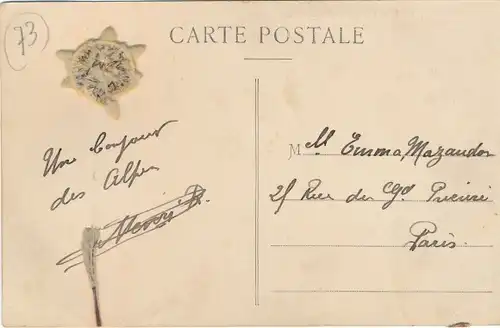 73
CARTE POSTALE
Un bonjour
des Alpes
Mlle Emma Mazaudon
25 Rue du
Paris.